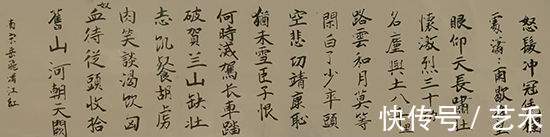 怒髮冲冠
瀟瀟雨歇
眼仰天長嘯壯
懷激烈三十
名塵與土
路雲和月莫等
閒白了少年頭
空悲切靖康恥
猶未雪臣子恨
何時滅駕長車踏
破賀蘭山缺壯
志飢餐胡虜
肉笑談渴飲匈
奴血待從頭收拾
舊山河朝天闕
南宋岳飛滿江紅
快传号/艺禾